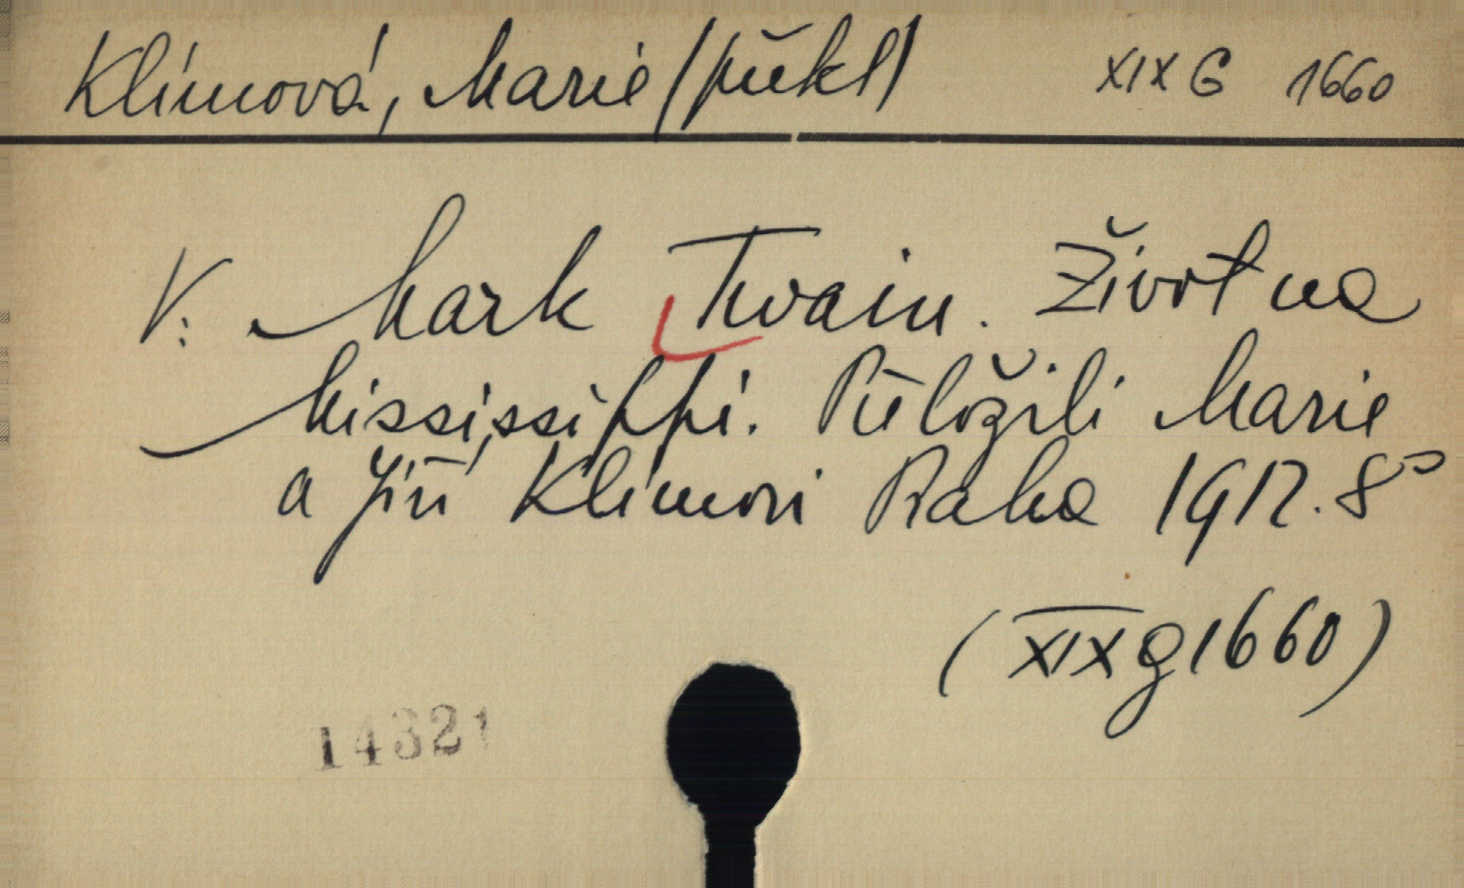 Klímová, Marie (překl) XIX G 1660
V: Mark Twain. Život na
Mississippi. Přeložili Marie
a Jiří Klímovi Praha 1912. 8°
(XIX g 1660)
14321